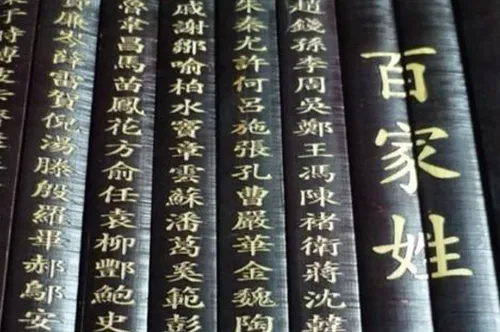 百家姓
趙錢孫李周吳鄭王馮陳褚衛蔣沈韓
朱秦尤許何呂施張孔曹嚴華金魏陶
戚謝鄒喻柏水竇章雲蘇潘葛奚範彭
魯韋昌馬苗鳳花方俞任袁柳酆鮑史
費廉岑薛雷賀倪湯滕殷羅畢郝鄔安
于時傅皮